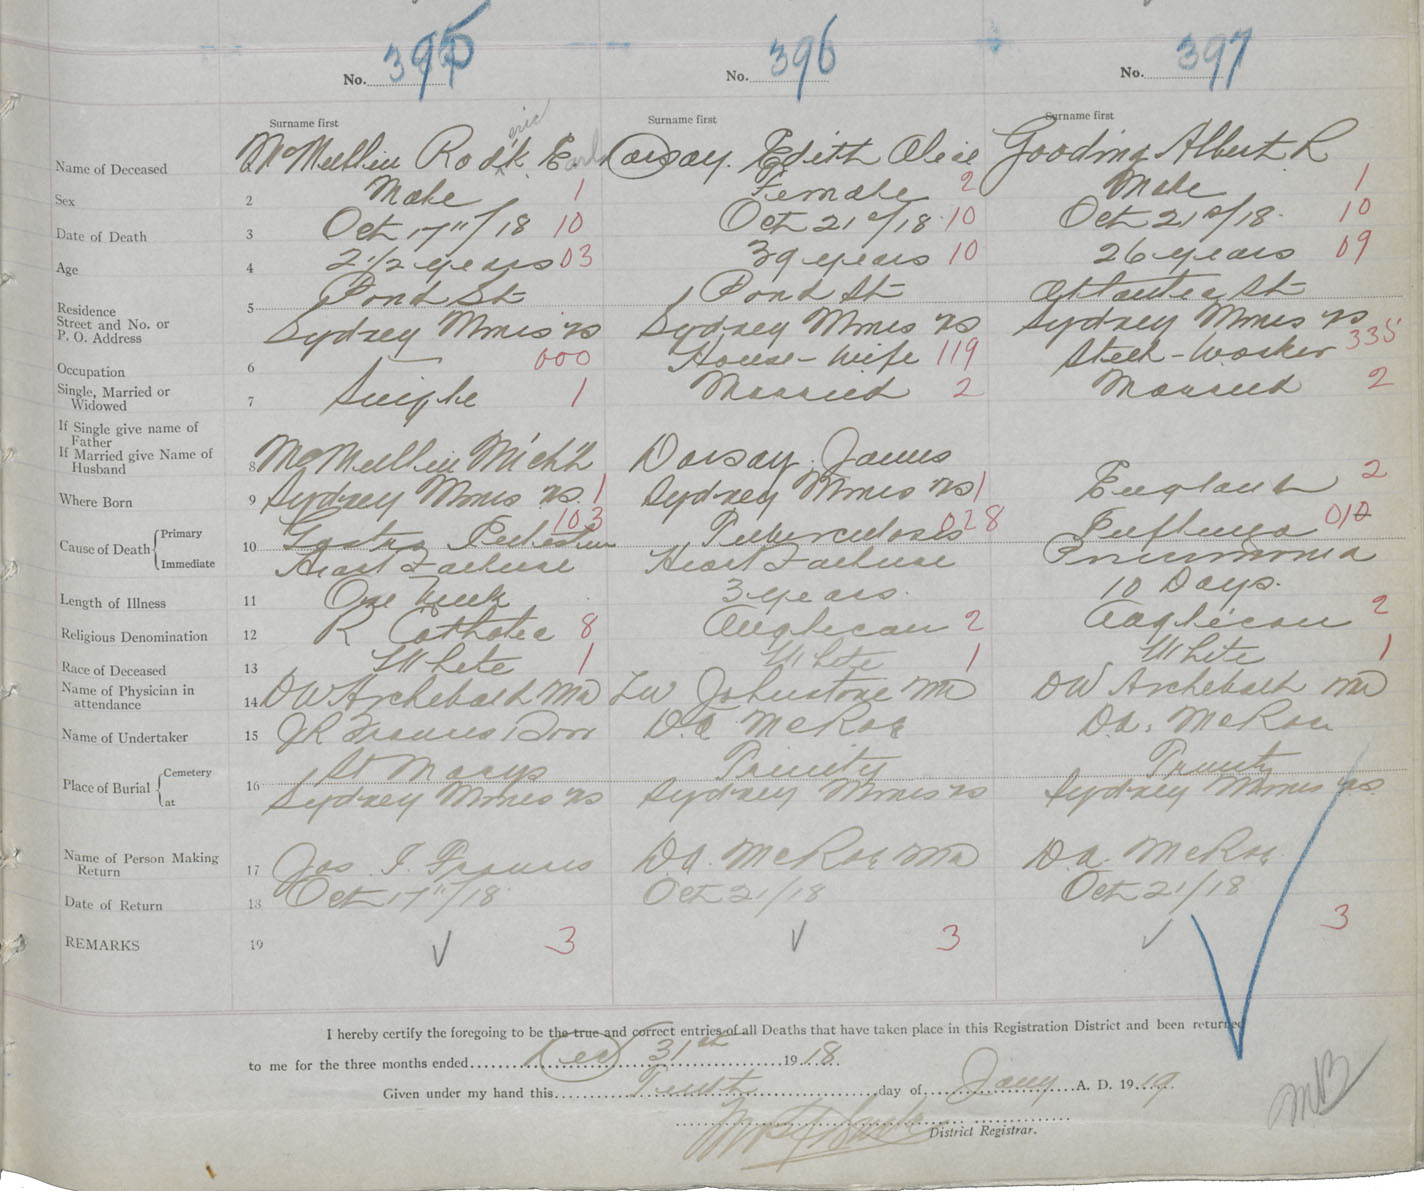 No. 395 No. 396 No. 397
Surname first Surname first Surname first
Name of Deceased McMullin Rod'k eric Earl Dorsay. Edith Alice Gooding Albert R
Sex 2 Male 1 Female 2 Male 1
Date of Death 3 Oct 17"/18 10 Oct 21st/18 10 Oct 21st/18 10
Age 4 2 1/2 years 03 39 years 10 26 years 09
Residence 5 Pond St Pond St Atlantic St
Street and No. or
P. O. Address Sydney Mines NS Sydney Mines NS Sydney Mines NS
Occupation 6 000 House-wife 119 Steel-worker 335
Single, Married or
Widowed 7 Single 1 Married 2 Married 2
If Single give name of
Father
If Married give Name of
Husband 8 McMullin Mich'l Dorsay. James
Where Born 9 Sydney Mines NS. 1 Sydney Mines NS 1 England 2
Cause of Death Primary 10 Gastro 103 Tuberculosis 028 Influenza 010
Immediate Heart Failure Heart Failure Pneumonia
Length of Illness 11 One Week 3 years. 10 Days.
Religious Denomination 12 R Catholic 8 Anglican 2 Anglican 2
Race of Deceased 13 White 1 White 1 White 1
Name of Physician in
attendance 14 DW Archibald MD LW Johnstone MD DW Archibald MD
Name of Undertaker 15 D.A. McRae D.A. McRae
Place of Burial Cemetery 16 St Marys Trinity Trinity
at Sydney Mines NS Sydney Mines NS Sydney Mines NS
Name of Person Making
Return 17 Jos. D.A. McRae D.A. McRae
Date of Return 18 Oct 17"/18 Oct 21/18 Oct 21/18
REMARKS 19 3 3 3
I hereby certify the foregoing to be the true and correct entries of all Deaths that have taken place in this Registration District and been returned
to me for the three months ended Dec 31st 1918.
Given under my hand this Tenth day of Jany A. D. 1919.
District Registrar.
MB